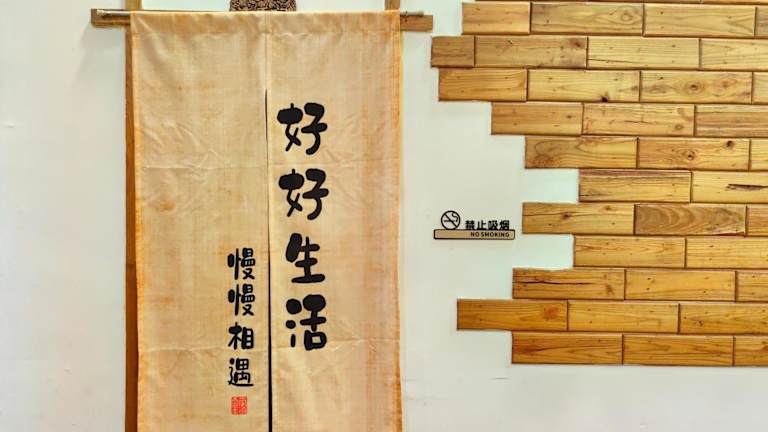 好好生活
慢慢相遇
禁止吸烟
NO SMOKING